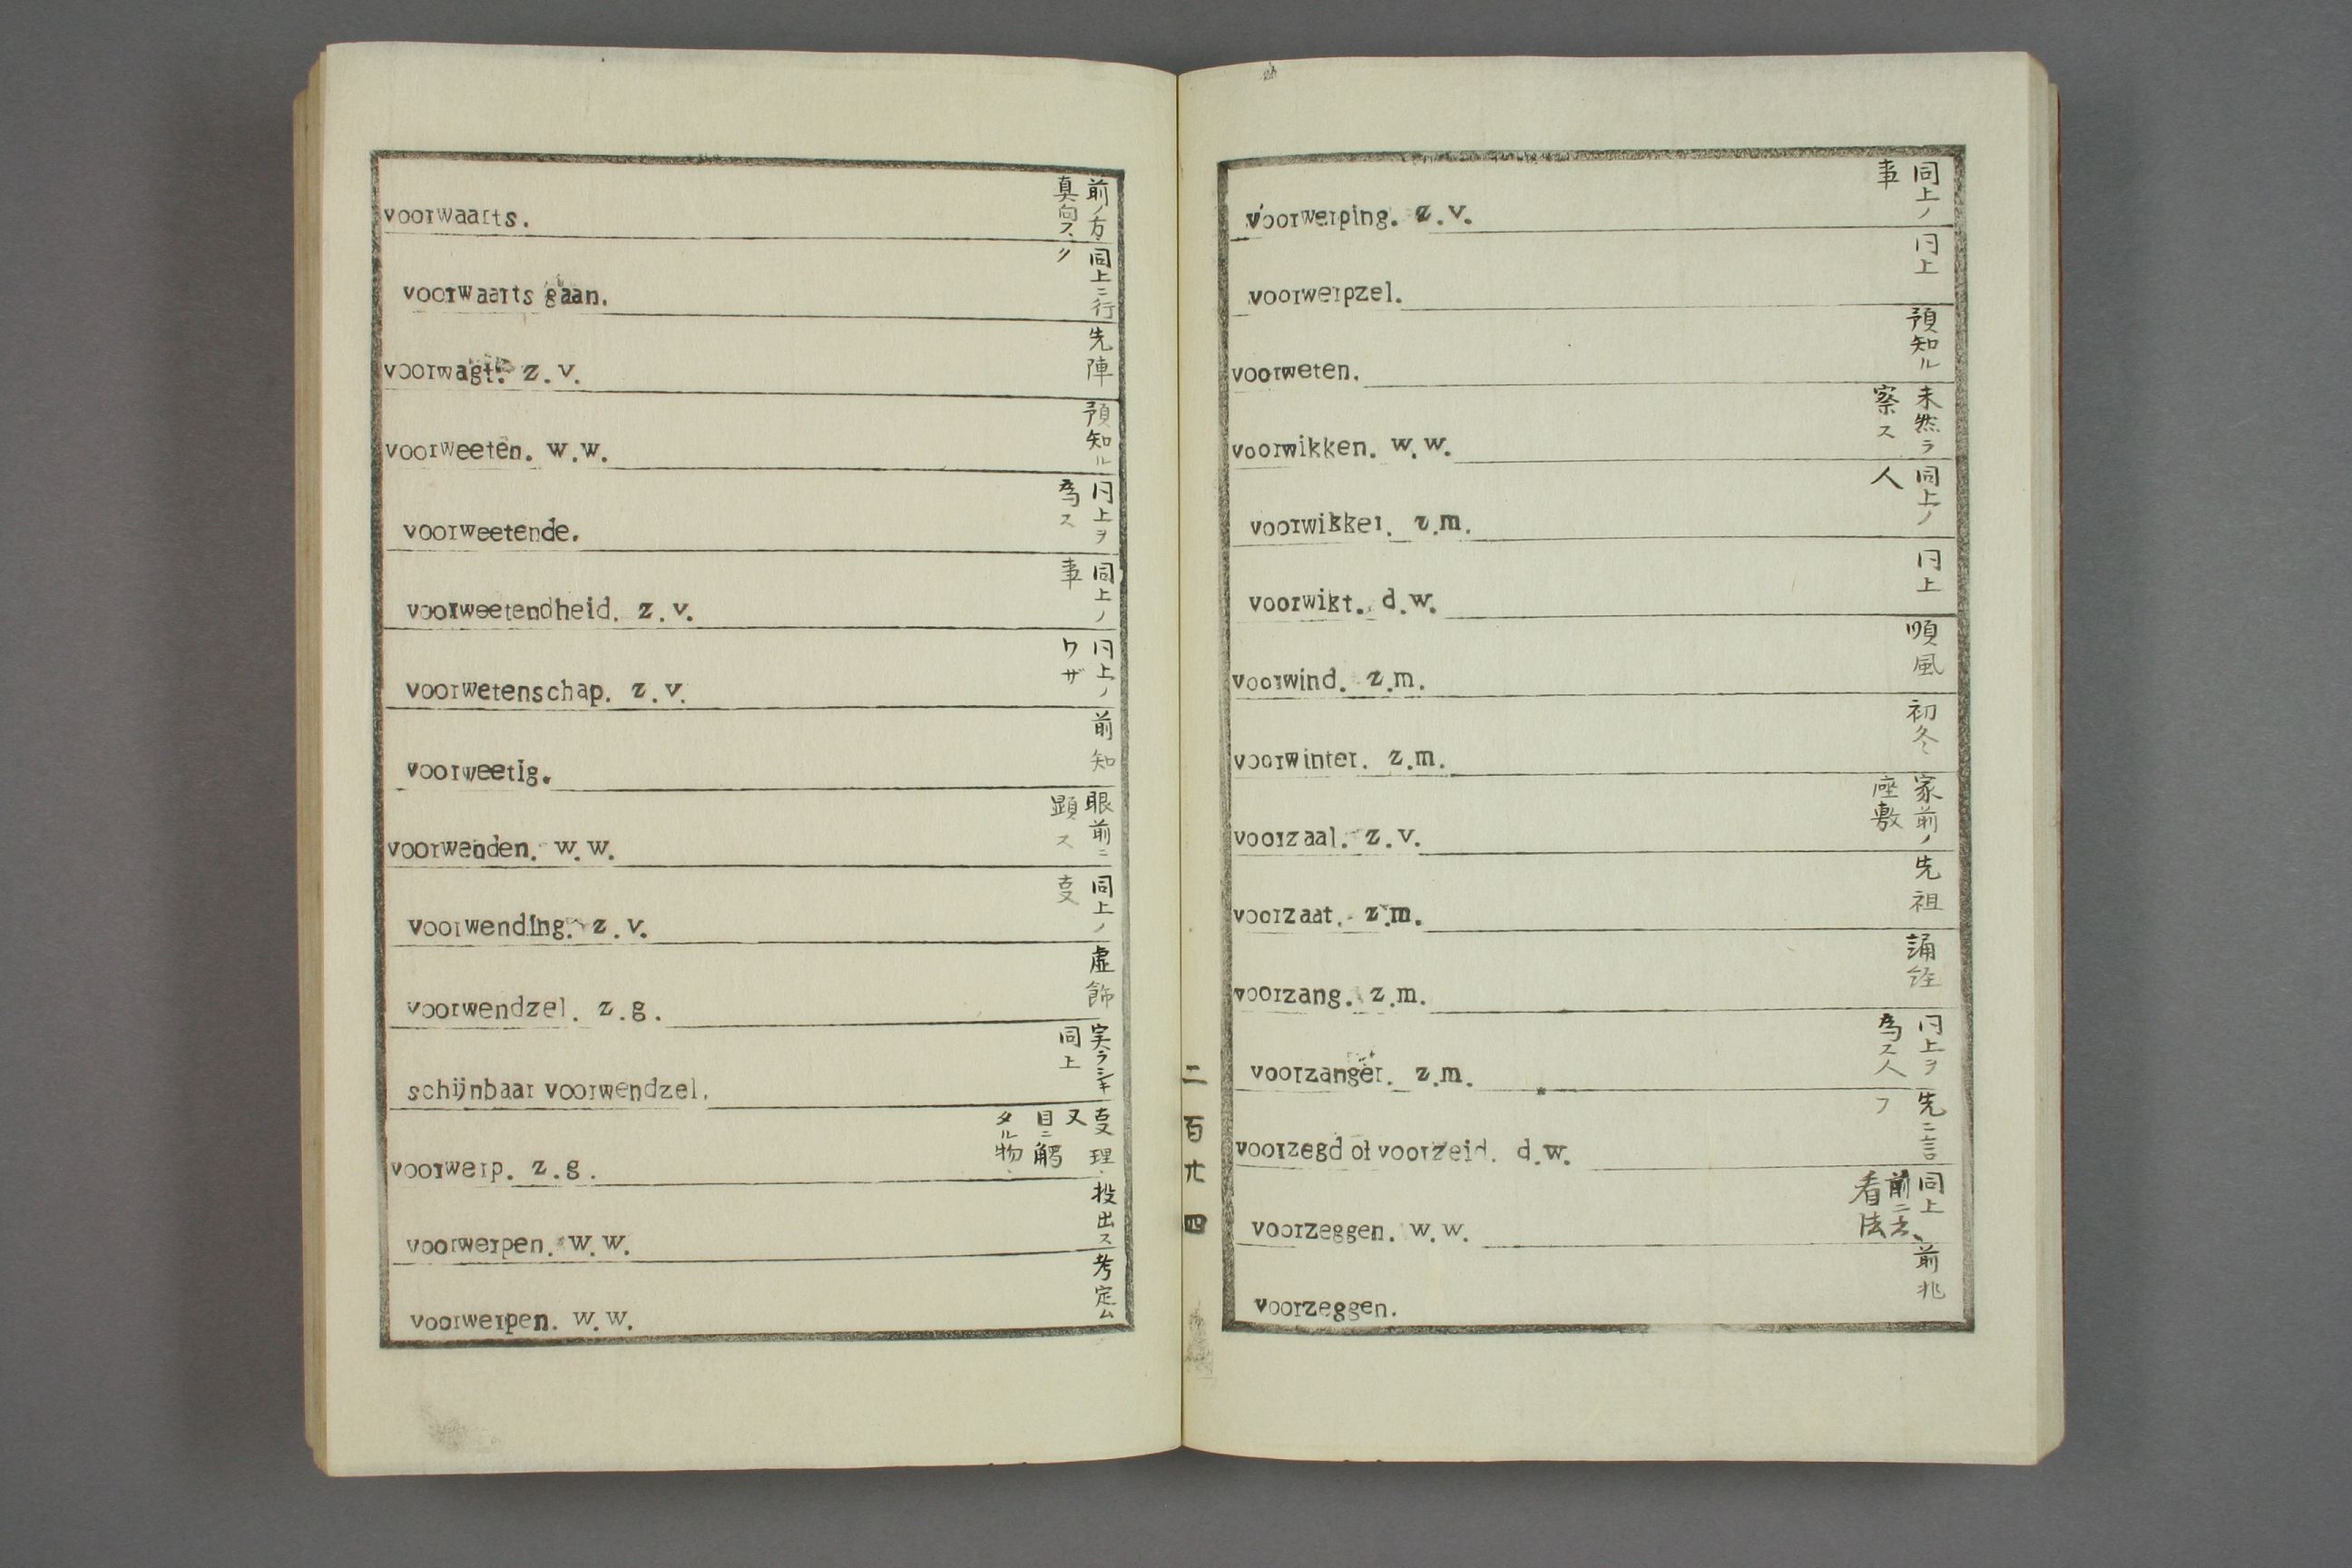 voorwaarts. 前ノ方
真向ス
voorwaarts gaan. 同上ニ行
ク
voorwagt. z.v. 先陣
voorweeten. w.w. 預知ル
voorweetende. 仝上ヲ
為ス
voorweetendheid. z.v. 同上ノ
事
voorwetenschap. z.v. 仝上ノ
ワザ
voorweetig. 前知
voorwenden. w.w. 眼前ニ
顕ス
voorwending. z.v. 同上ノ
voorwendzel. z.g. 虚飾
schijnbaar voorwendzel. 実ラシキ
同上
voorwerp. z.g. 理
又
目ニ觸
タル物
voorwerpen. w.w. 投出ス
voorwerpen. w.w. 考定ム
voorwerping. z.v. 同上ノ
事
voorwerpzel. 仝上
voorweten. 預知ル
voorwikken. w.w. 未然ヲ
察ス
voorwikker. z.m. 同上ノ
人
voorwikt. d.w. 仝上
voorwind. z.m. 順風
voorwinter. z.m. 初冬
voorzaal. z.v. 家前ノ
座敷
voorzaat. z.m. 先祖
voorzang. z.m. 誦経
voorzanger. z.m. 仝上ヲ
為ス人
voorzegd of voorzeid. d.w. 先ニ言
フ
voorzeggen. w.w. 同上
前ニ
看法
voorzeggen. 前兆
二百六十四